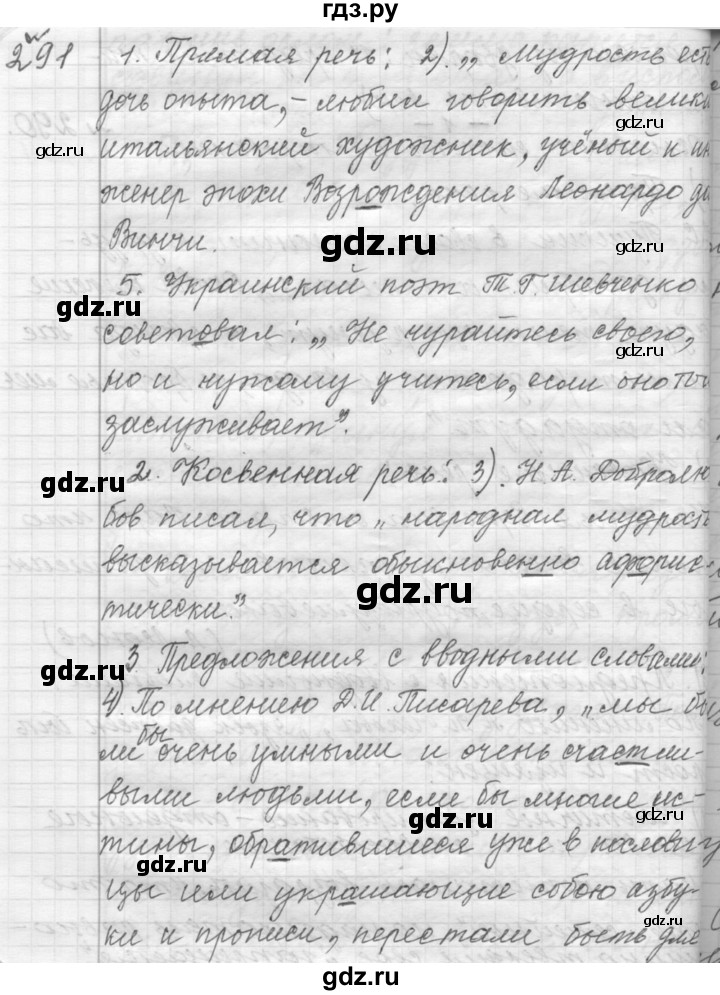 гдз.ру
291 1. Прямая речь: 2). „ Мудрость есть
дочь опыта, – любил говорить великий
gdz.ru
gdz.ru
итальянский художник, учёный и ин
женер эпохи Возрождения Леонардо да
Винчи.
gdz.ru
gdz.ru
5. Украинский поэт Т.Г. Шевченко
gdz.ru
советовал: „ Не чурайтесь своего,
gdz.ru
но и чужому учитесь, если оно того
заслуживает".
gdz.ru
2. Косвенная речь: 3). Н А. Добролю
бов писал, что „ народная мудрость
высказывается обыкновенно афорис-
gdz.ru
gdz.ru
тически."
gdz.ru
3 Предложения с вводными словами:
4). По мнению Д.И. Писарева, „ мы бы
ли бы очень умными и очень счастли-
выми людьми, если бы многие ис-
gdz.ru
gdz.ru
тины, обратившиеся уже в послови
gdz.ru
цы или украшающие собою азбу-
gdz.ru
ки и прописи, перестали быть для
gdz.ru